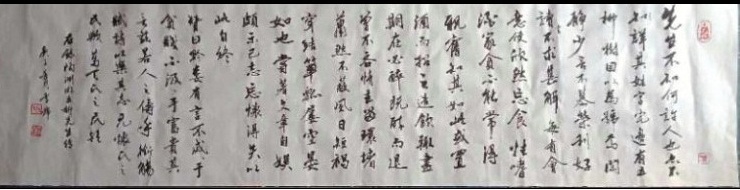 先生不知何許人也亦不
知詳其姓字宅邊有五
柳樹因以為號焉閑
靜少言不慕榮利好
讀不求甚解每有會
意便欣然忘食性嗜
酒家貧不能常得
親舊知其如此或置
酒而招之造飲輒盡
期在必醉既醉而退
曾不吝情去留環堵
蕭然不蔽風日短褐
穿結簞瓢屢空晏
如也常著文章自娛
頗示己志忘懷得失以
此自終
贊曰黔婁有言不戚于
貧賤不汲于富貴其
言茲若人之儔乎銜觴
賦詩以樂其志无懷氏之
民歟葛天氏之民歟
右錄陶淵明五柳先生傳